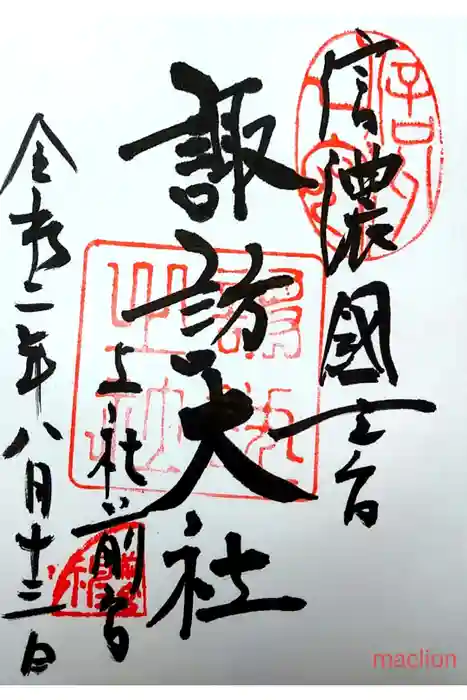 信濃國一宮
諏訪大社
上社前宮
令和二年八月十三日
maclion